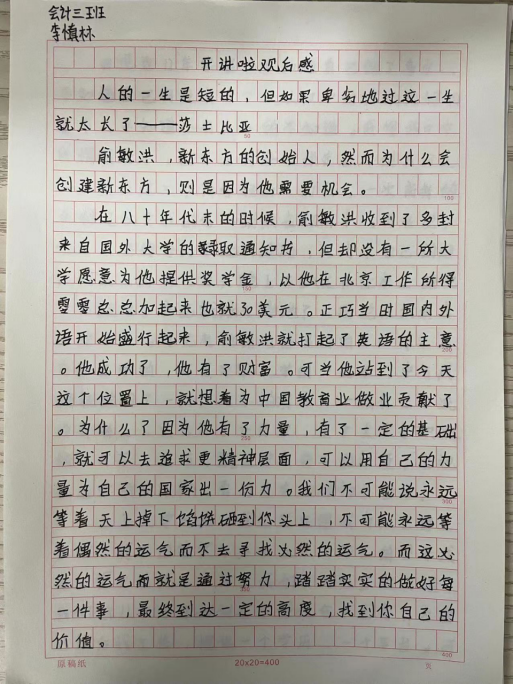 会计三班
李慎林
开讲啦观后感
人的一生是短的，但如果卑劣地过这一生
就太长了——莎士比亚
俞敏洪，新东方的创始人，然而为什么会
创建新东方，则是因为他需要机会。
在八十年代末的时候，俞敏洪收到了多封
来自国外大学的录取通知书，但却没有一所大
学愿意为他提供奖学金，以他在北京工作所得
零零总总加起来也就30美元。正巧当时国内外
语开始盛行起来，俞敏洪就打起了英语的主意
。他成功了，他有了财富。可当他站到了今天
这个位置上，就想着为中国教育业做业贡献了
。为什么了因为他有了力量，有了一定的基础
，就可以去追求更精神层面，可以用自己的力
量为自己的国家出一份力。我们不可能说永远
等着天上掉下馅饼砸到你头上，不可能永远等
着偶然的运气而不去寻找必然的运气。而这必
然的运气而就是通过努力，踏踏实实的做好每
一件事，最终到达一定的高度，找到你自己的
价值。
原稿纸 20×20=400 页